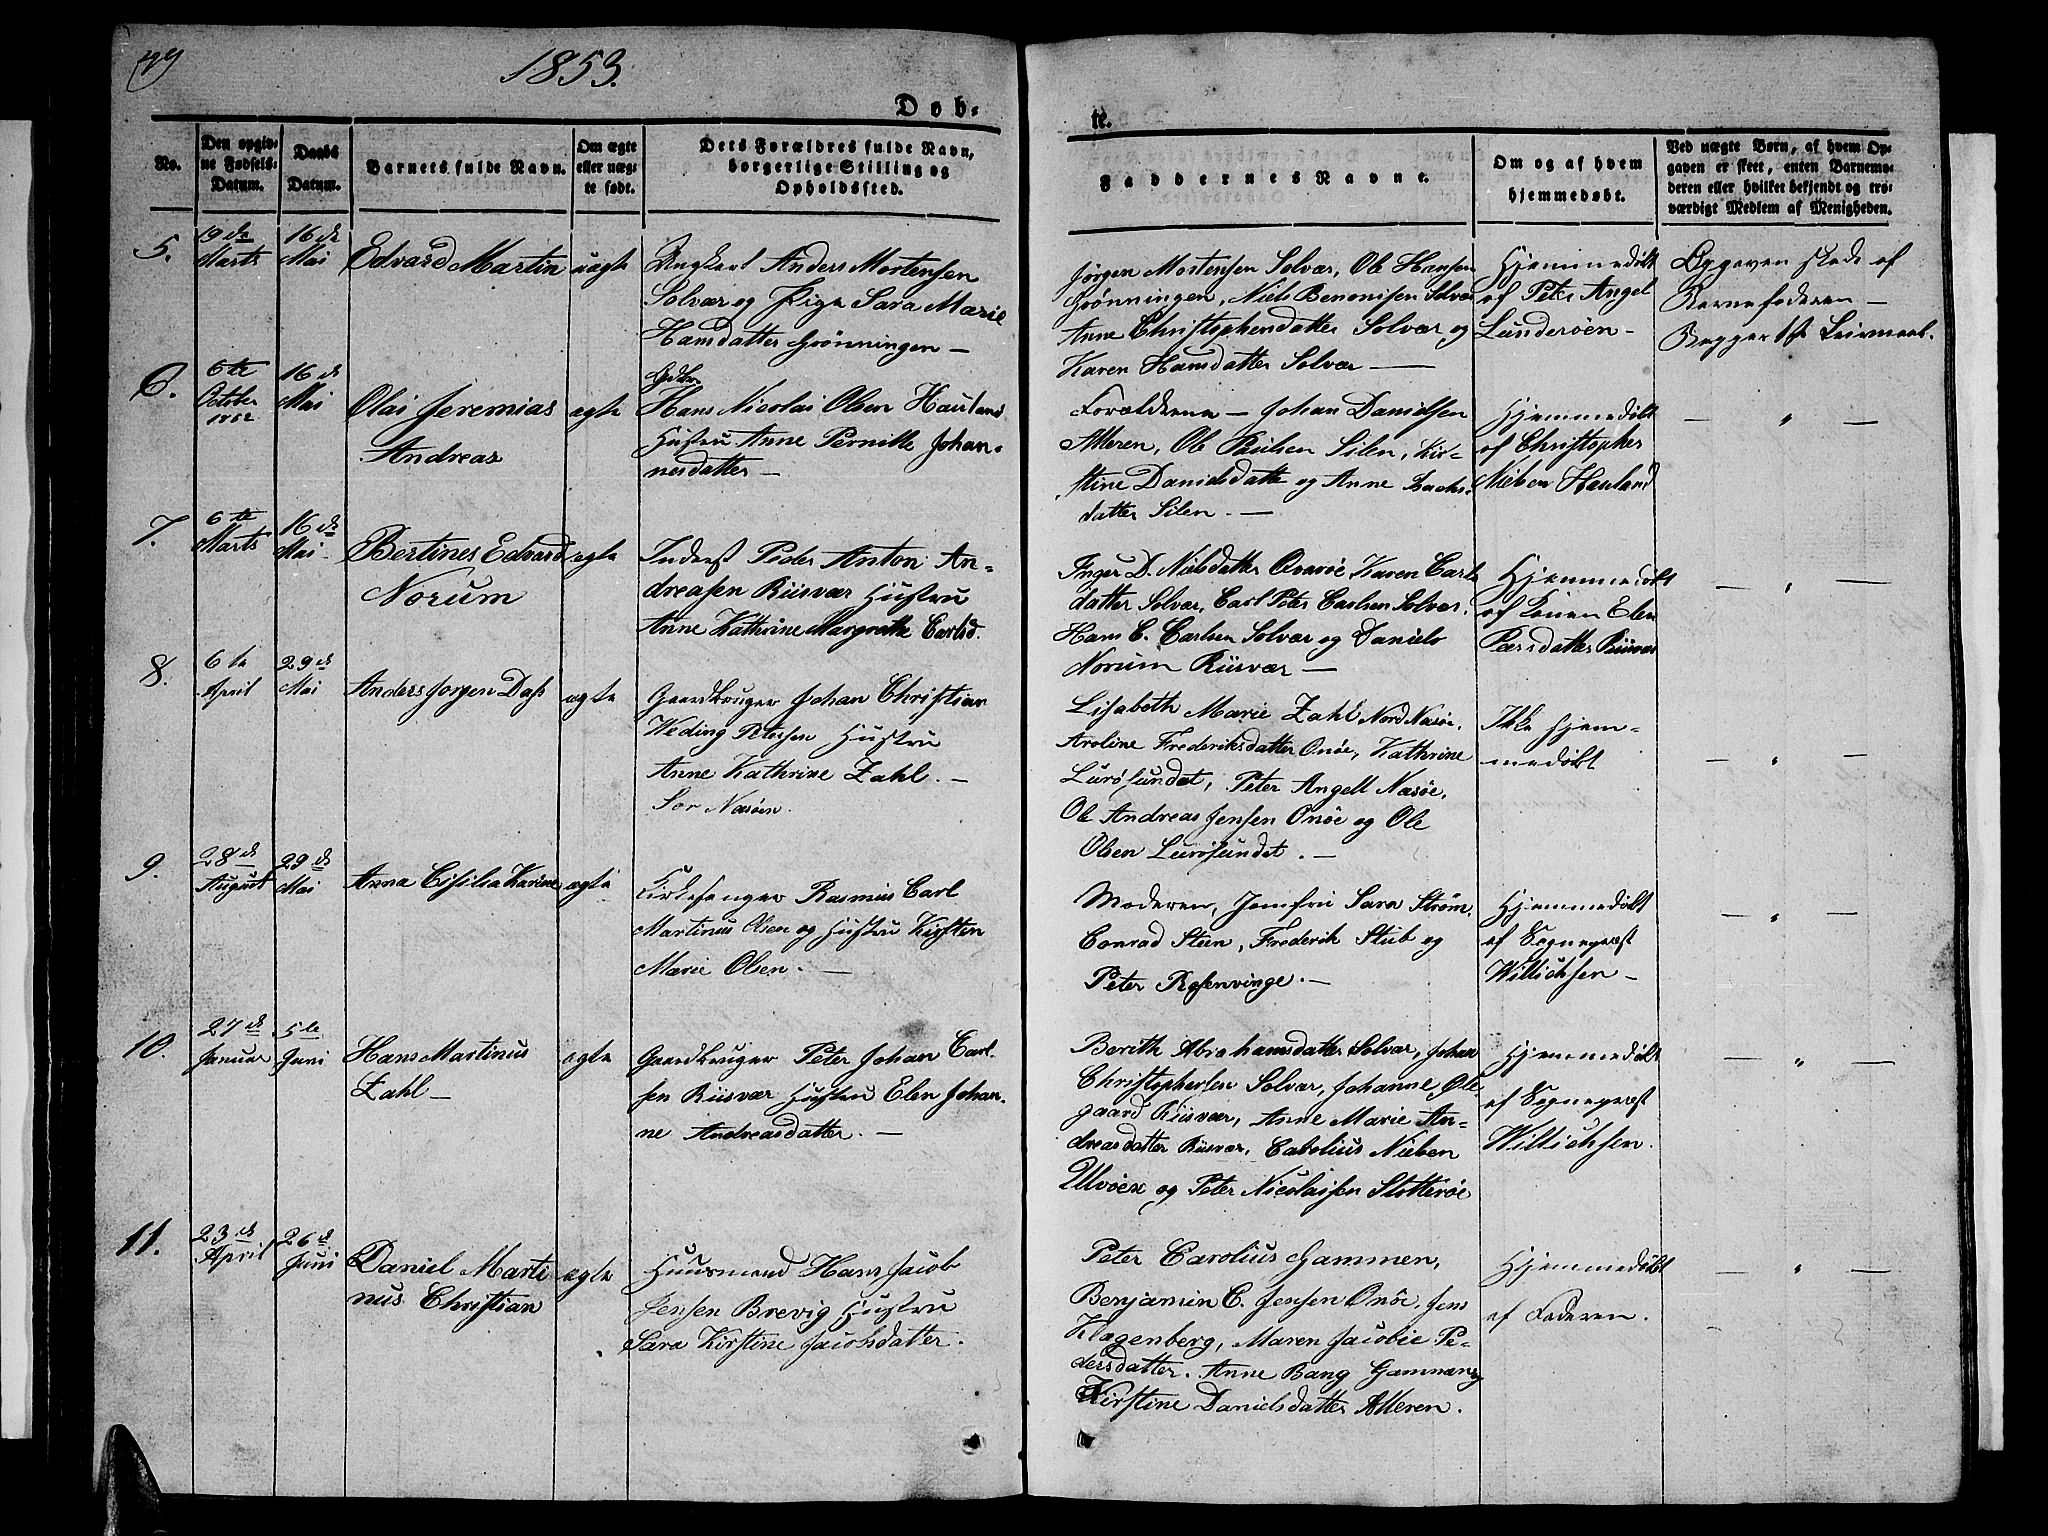 1853.
Døb-
te.
No.
Den opgiv-
ne Fødsels-
Datum.
Daabs
Datum.
Barnets fulde Navn.
Om ægte
eller uæg-
te født.
Dets Forældres fulde Navn,
borgerlige Stilling og
Opholdssted.
Faddernes Navne.
Om og af hvem
hjemmedøbt.
Ved uægte Børn, af hvem Op-
gaven er skeet, enten Barnemo-
deren eller hvilket bekjendt og tro-
værdigt Medlem af Menigheden.
5.
19de
Marts
16de
Mai
Edvard Martin
uægte
Ungkarl Anders Mortensen
Solvær og Pige Sara Marie
Hansdatter Grønningen —
Jørgen Mortensen Solvær, Ole Hansen
Grønningen, Niels Benonisen Solvær
Anne Christophersdatter Solvær og
Karen Hansdatter Solvær —
Hjemmedøbt
af Peter Angel
Lunderøen —
Opgaven skede af
Barnefaderen —
Begges 1ste Leiermaal.
6.
6te
October
1852
16de
Mai
Olai Jeremias
Andreas
ægte
Hans Nicolai Olsen Hauland
Hustru Anne Pernille Johan-
nesdatter —
Forældrene — Johan Danielsen
Alteren, Ole Paulsen Silen, Kir-
stine Danielsdatter og Anne
datter Silen. —
Hjemmedøbt
af Christopher
Nielsen Hauland
— " —
7.
6te
Marts
16de
Mai
Bertines Edvard
Norum
ægte
Inderst Peder Anton An-
dreasen Riisvær Hustru
Anne Kathrine Margrethe Carlsd.
Inger D. Nielsdatter Qvarøe Karen Carls
datter Solvær, Carl Peter Carlsen Solvær,
Hans C. Carlsen Solvær og Daniels
Norum Riisvær —
Hjemmedøbt
af Konen Elen
Pedersdatter Riisvær
— " —
8.
6te
April
29de
Mai
Anders Jørgen Dass
ægte
Gaardbruger Johan Christian
Weding Petersen Hustru
Anne Kathrine Zahl. —
Sør Næsøen.
Lisabeth Marie Zahl Nord Næsøe,
Aroline Frederiksdatter Onøe, Kathrine
Lurøsundet, Peter Angell Næsøe,
Ole Andreas Jensen Onøe og Ole
Olsen Lurøsundet. —
Ikke hjem-
medøbt
— " —
9.
28de
August
29de
Mai
Anna Cisilia Karine
ægte
Kirkesanger Rasmus Carl
Martinus Olsen og Hustru Kirsten
Marie Olsen. —
Moderen, Jomfru Sara Strøm,
Conrad Steen, Frederik Stub og
Peter Rosenvinge. —
Hjemmedøbt
af Sognepræst
Willichsen —
— " —
10.
27de
Januar
5te
Juni
Hans Martinus
Zahl —
ægte
Gaardbruger Peter Johan Carl-
sen Riisvær Hustru Elen Johan-
ne Andreasdatter. —
Berith Abrahamsdatter Solvær, Johan
Christophersen Solvær, Johanne Ole
gaard Riisvær, Anne Marie An-
dreasdatter Riisvær, Cabelius Nielsen
Ulvøen og Peter Nicolaisen Slotterøe
Hjemmedøbt
af Sognepræst
Willichsen.
— " —
11.
23de
April
26de
Juni
Daniel Marti
nus Christian
ægte
Huusmand Hans Jacob
Jensen Brevig Hustru
Sara Kirstine Jacobsdatter.
Peter Carolius Gammen,
Benjamin C. Jensen Onøe, Jens
Klagenberg, Maren Jacobie Pe-
dersdatter. Anne Bang Gammen og
Kirstine Danielsdatter Alteren.
Hjemmedøbt
af Faderen.
— " —